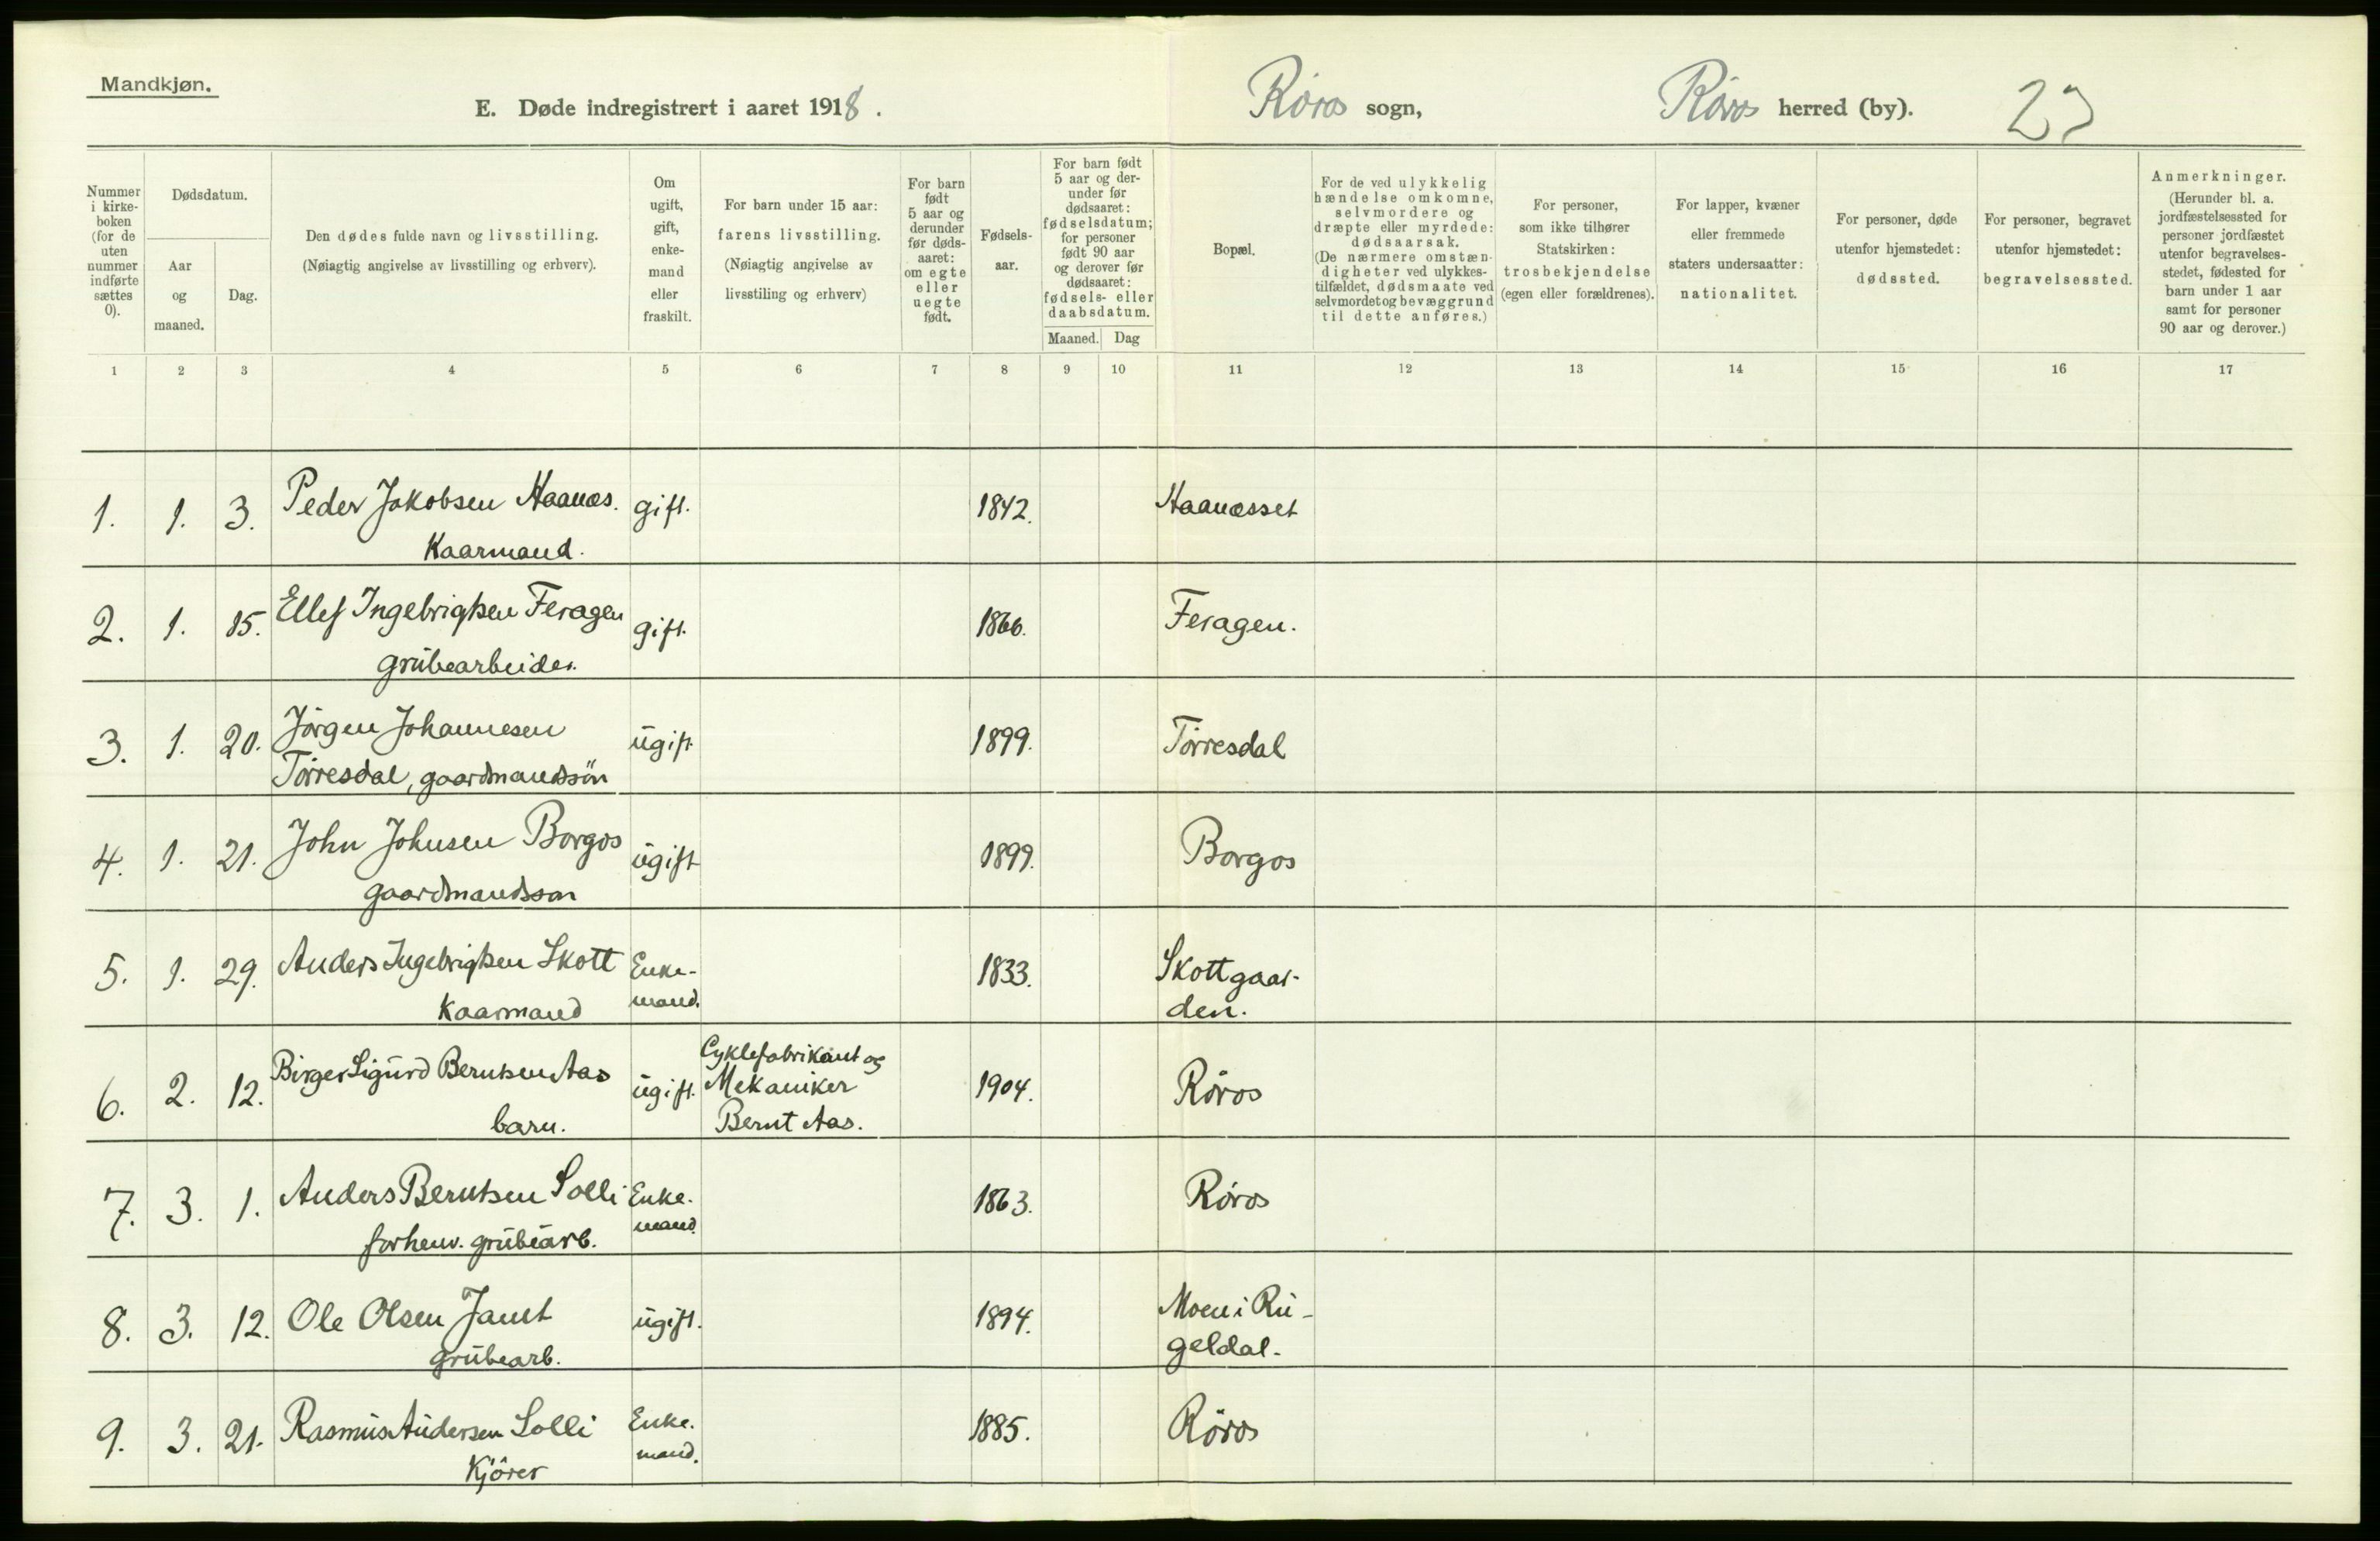 Mandkjøn.
E. Døde indregistrert i aaret 1918.
Røros sogn, Røros herred (by). 27
Nummer i kirke-boken (for de uten nummer indførte sættes 0).
Dødsdatum.
Aar og maaned.
Dag.
Den dødes fulde navn og livsstilling.
(Nøiagtig angivelse av livsstilling og erhverv).
Om ugift, gift, enke-mand eller fraskilt.
For barn under 15 aar: farens livsstilling. (Nøiagtig angivelse av livsstiling og erhverv)
For barn født 5 aar og derunder før døds-aaret: om egte eller uegte født.
Fødsels-aar.
For barn født 5 aar og der-under før dødsaaret: fødselsdatum; for personer født 90 aar og derover før dødsaaret: fødsels- eller daabsdatum.
Maaned. Dag
Bopæl.
For de ved ulykkelig hændelse omkomne, selvmordere og dræpte eller myrdede: dødsaarsak. (De nærmere omstæn-digheter ved ulykkes-tilfældet, dødsmaate ved selvmordet og bevæggrund til dette anføres.)
For personer, som ikke tilhører Statskirken: trosbekjendelse (egen eller forældrenes).
For lapper, kvæner eller fremmede staters undersaatter: nationalitet.
For personer, døde utenfor hjemstedet: dødssted.
For personer, begravet utenfor hjemstedet: begravelsessted.
Anmerkninger. (Herunder bl. a. jordfæstelsessted for personer jordfæstet utenfor begravelses-stedet, fødested for barn under 1 aar samt for personer 90 aar og derover.)
1 2 3 4 5 6 7 8 9 10 11 12 13 14 15 16 17
1. 1. 3. Peder Jakobsen Haanæs. gift. 1842. Haanæsset
Kaarmand.
2. 1. 15. Ellef Ingebrigtsen Feragen gift. 1866. Feragen.
grubearbeider.
3. 1. 20. Jörgen Johannesen ugift. 1899. Törresdal
Törresdal, gaardmandssön
4. 1. 21. John Johnsen Borgos ugift 1899. Borgos
gaardmandsson
5. 1. 29. Anders Ingebrigtsen Skott Enke- 1833. Skottgaar-
Kaarmand mand. den.
6. 2. 12. Birger Sigurd Berntsen Aas ugift. Cyklefabrikant og 1904. Röros
Mekaniker
barn. Bernt Aas.
7. 3. 1. Anders Berntsen Solli Enke- 1863. Röros
forhenv. grubearb. mand.
8. 3. 12. Ole Olsen Jamt ugift. 1894. Moen i Ru-
grubearb. geldal.
9. 3. 21. Rasmus Andersen Solli Enke- 1885. Röros
Kjörer mand.